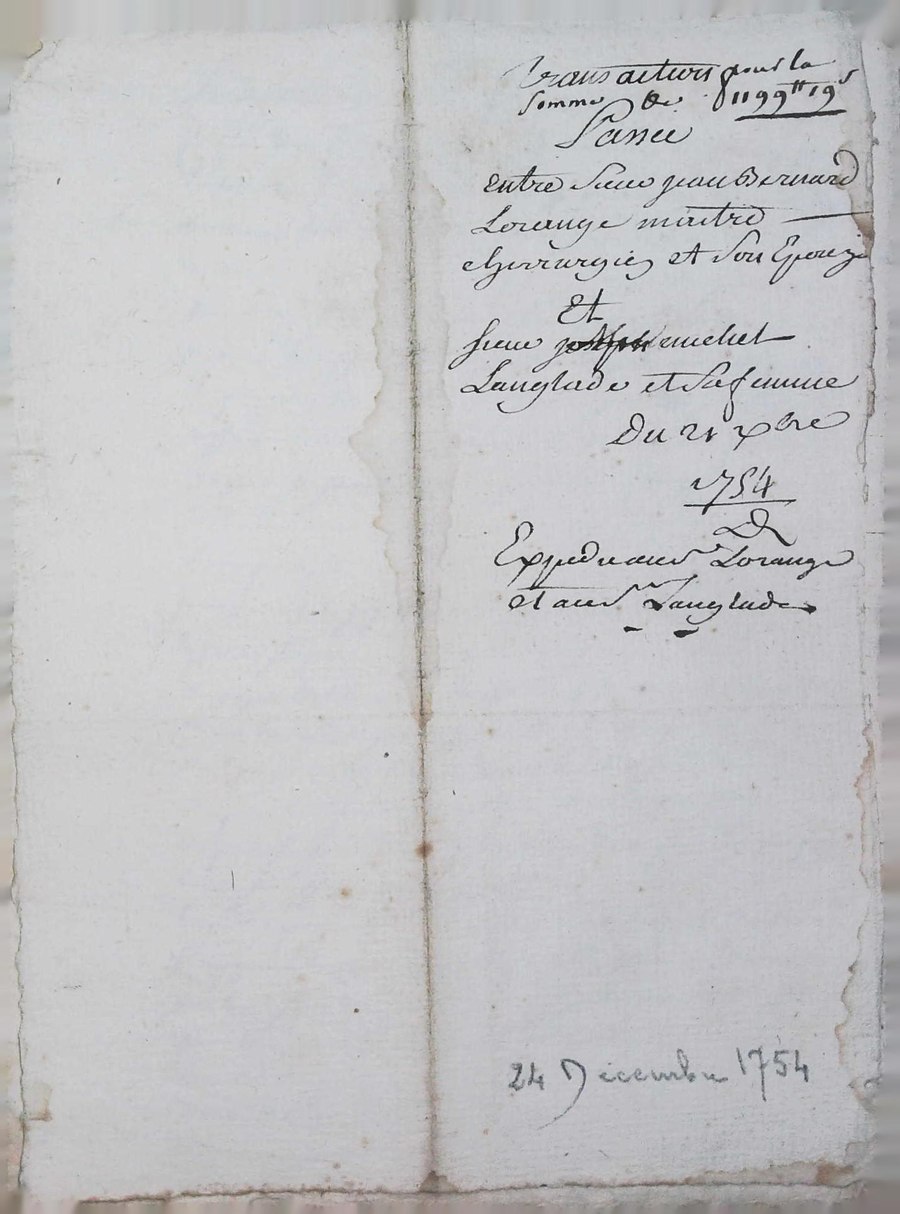 Transaction pour la
somme de 1199tt 19s
Passée
entre Sieur jean Bernard
Lorange maitre
chirurgien et Son Epouze
Et
sieur joseph michel
Langlade et Sa femme
Du 21 xbre
1754
Expedié au sr Lorange
et au sr Langlade
24 Décembre 1754